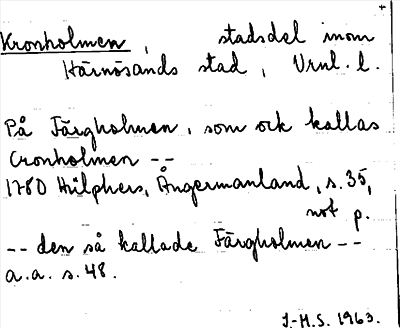 Kronholmen, stadsdel inom
Härnösands stad, Vrnl. l.
På Färgholmen, som ock kallas
Cronholmen --
1780 Hülphers, Ångermanland, s. 35,
not p.
-- den så kallade Färgholmen --
a.a. s. 48.
J.-H.S. 1963.